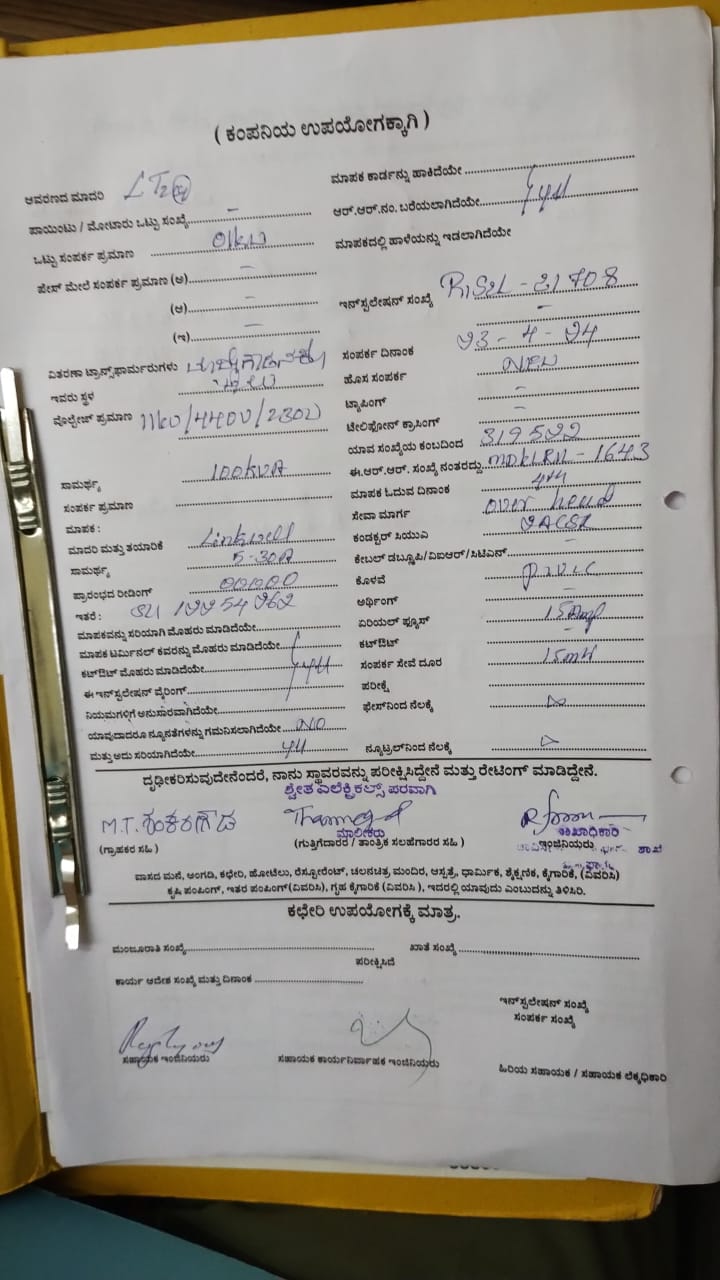 ( ಕಂಪನಿಯ ಉಪಯೋಗಕ್ಕಾಗಿ )
ಆವರಣದ ಮಾದರಿ LT2@
ಮಾಪಕ ಕಾರ್ಡನ್ನು ಹಾಕಿದೆಯೇ
ಪಾಯಿಂಟು / ಮೋಟಾರು ಒಟ್ಟು ಸಂಖ್ಯೆ –
ಆರ್.ಆರ್.ನಂ. ಬರೆಯಲಾಗಿದೆಯೇ
ಒಟ್ಟು ಸಂಪರ್ಕ ಪ್ರಮಾಣ 01kW
ಮಾಪಕದಲ್ಲಿ ಹಾಳೆಯನ್ನು ಇಡಲಾಗಿದೆಯೇ
ಫೇಸ್ ಮೇಲೆ ಸಂಪರ್ಕ ಪ್ರಮಾಣ (ಅ) –
(ಆ) –
ಇನ್‌ಸ್ಟಲೇಷನ್ ಸಂಖ್ಯೆ
(ಇ) –
ವಿತರಣಾ ಟ್ರಾನ್ಸ್‌ಫಾರ್ಮರುಗಳು
ಸಂಪರ್ಕ ದಿನಾಂಕ 23-4-24
ಇವರು ಸ್ಥಳ
ಹೊಸ ಸಂಪರ್ಕ NEW
ವೊಲ್ಟೇಜ್ ಪ್ರಮಾಣ 11kV/440V/230V
ಟ್ಯಾಪಿಂಗ್ –
ಟೆಲಿಫೋನ್ ಕ್ರಾಸಿಂಗ್ –
ಯಾವ ಸಂಖ್ಯೆಯ ಕಂಬದಿಂದ
ಸಾಮರ್ಥ್ಯ 100kVA
ಈ.ಆರ್.ಆರ್. ಸಂಖ್ಯೆ ನಂತರದ್ದು
ಸಂಪರ್ಕ ಪ್ರಮಾಣ
ಮಾಪಕ ಓದುವ ದಿನಾಂಕ 4th
ಮಾಪಕ :
ಸೇವಾ ಮಾರ್ಗ over head
ಮಾದರಿ ಮತ್ತು ತಯಾರಿಕೆ Linkwell
ಕಂಡಕ್ಟರ್ ಸಿಯುಎ
ಸಾಮರ್ಥ್ಯ 5-30A
ಕೇಬಲ್ ಡಬ್ಲ್ಯೂಪಿ/ವಿಐಆರ್/ಸಿಟಿಎಸ್ –
ಪ್ರಾರಂಭದ ರೀಡಿಂಗ್ 00000
ಕೊಳವೆ
ಇತರೆ :
ಅರ್ಥಿಂಗ್ –
ಮಾಪಕವನ್ನು ಸರಿಯಾಗಿ ಮೊಹರು ಮಾಡಿದೆಯೇ
ಏರಿಯಲ್ ಫ್ಯೂಸ್ 15Amp
ಮಾಪಕ ಟರ್ಮಿನಲ್ ಕವರನ್ನು ಮೊಹರು ಮಾಡಿದೆಯೇ
ಕಟ್‌ಔಟ್ –
ಕಟ್‌ಔಟ್ ಮೊಹರು ಮಾಡಿದೆಯೇ
ಸಂಪರ್ಕ ಸೇವೆ ದೂರ
ಈ ಇನ್‌ಸ್ಟಲೇಷನ್ ವೈರಿಂಗ್
ಪರೀಕ್ಷೆ
ನಿಯಮಗಳಿಗೆ ಅನುಸಾರವಾಗಿದೆಯೇ
ಫೇಸ್‌ನಿಂದ ನೆಲಕ್ಕೆ
ಯಾವುದಾದರೂ ನ್ಯೂನತೆಗಳನ್ನು ಗಮನಿಸಲಾಗಿದೆಯೇ NO
ಮತ್ತು ಅದು ಸರಿಯಾಗಿದೆಯೇ
ನ್ಯೂಟ್ರಲ್‌ನಿಂದ ನೆಲಕ್ಕೆ
ದೃಢೀಕರಿಸುವುದೇನೆಂದರೆ, ನಾನು ಸ್ಥಾವರವನ್ನು ಪರೀಕ್ಷಿಸಿದ್ದೇನೆ ಮತ್ತು ರೇಟಿಂಗ್ ಮಾಡಿದ್ದೇನೆ.
ಶ್ವೇತ ಎಲೆಕ್ಟ್ರಿಕಲ್ಸ್ ಪರವಾಗಿ
M.T. ಶಂಕರಗೌಡ
ಮಾಲೀಕರು
ಶಾಖಾಧಿಕಾರಿ
(ಗ್ರಾಹಕರ ಸಹಿ )
(ಗುತ್ತಿಗೆದಾರರ / ತಾಂತ್ರಿಕ ಸಲಹೆಗಾರರ ಸಹಿ )
ಇಂಜಿನಿಯರು
ವಾಸದ ಮನೆ, ಅಂಗಡಿ, ಕಛೇರಿ, ಹೋಟೆಲು, ರೆಸ್ಟೋರೆಂಟ್, ಚಲನಚಿತ್ರ ಮಂದಿರ, ಆಸ್ಪತ್ರೆ, ಧಾರ್ಮಿಕ, ಶೈಕ್ಷಣಿಕ, ಕೈಗಾರಿಕೆ, (ವಿವರಿಸಿ)
ಕೃಷಿ ಪಂಪಿಂಗ್, ಇತರ ಪಂಪಿಂಗ್(ವಿವರಿಸಿ), ಗೃಹ ಕೈಗಾರಿಕೆ (ವಿವರಿಸಿ ), ಇದರಲ್ಲಿ ಯಾವುದು ಎಂಬುದನ್ನು ತಿಳಿಸಿರಿ.
ಕಛೇರಿ ಉಪಯೋಗಕ್ಕೆ ಮಾತ್ರ.
ಮಂಜೂರಾತಿ ಸಂಖ್ಯೆ
ಖಾತೆ ಸಂಖ್ಯೆ
ಪರೀಕ್ಷಿಸಿದೆ
ಕಾರ್ಯ ಆದೇಶ ಸಂಖ್ಯೆ ಮತ್ತು ದಿನಾಂಕ
ಇನ್‌ಸ್ಟಲೇಷನ್ ಸಂಖ್ಯೆ
ಸಂಪರ್ಕ ಸಂಖ್ಯೆ
ಸಹಾಯಕ ಇಂಜಿನಿಯರು
ಸಹಾಯಕ ಕಾರ್ಯನಿರ್ವಾಹಕ ಇಂಜಿನಿಯರು
ಹಿರಿಯ ಸಹಾಯಕ / ಸಹಾಯಕ ಲೆಕ್ಕಧಿಕಾರಿ